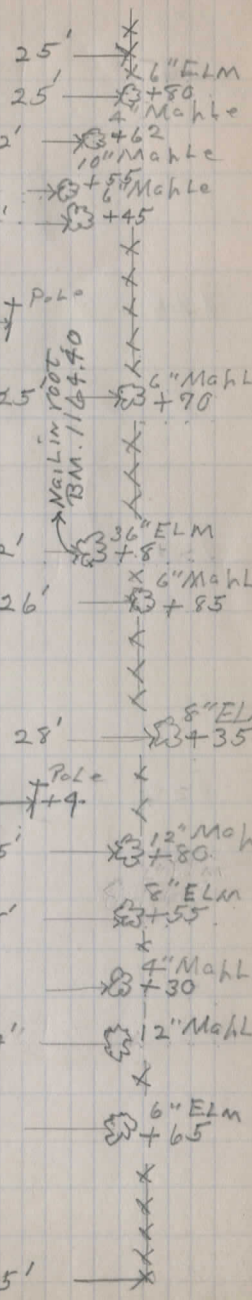 25'
6" ELM
25' +80
4" Mahle
2' +62
10" Mahle
+55
6" Mahle
+45
Pole
6" Mahl
25' +70
Nail in root
BM. 1164.40
36" ELM
2' +8
6" Mahl
26' +85
8" EL
28' +35
Pole
+4
12" Mahl
5' +80
8" ELM
+55
4" Mahl
+30
12" Mahl
6" ELM
+65
5'